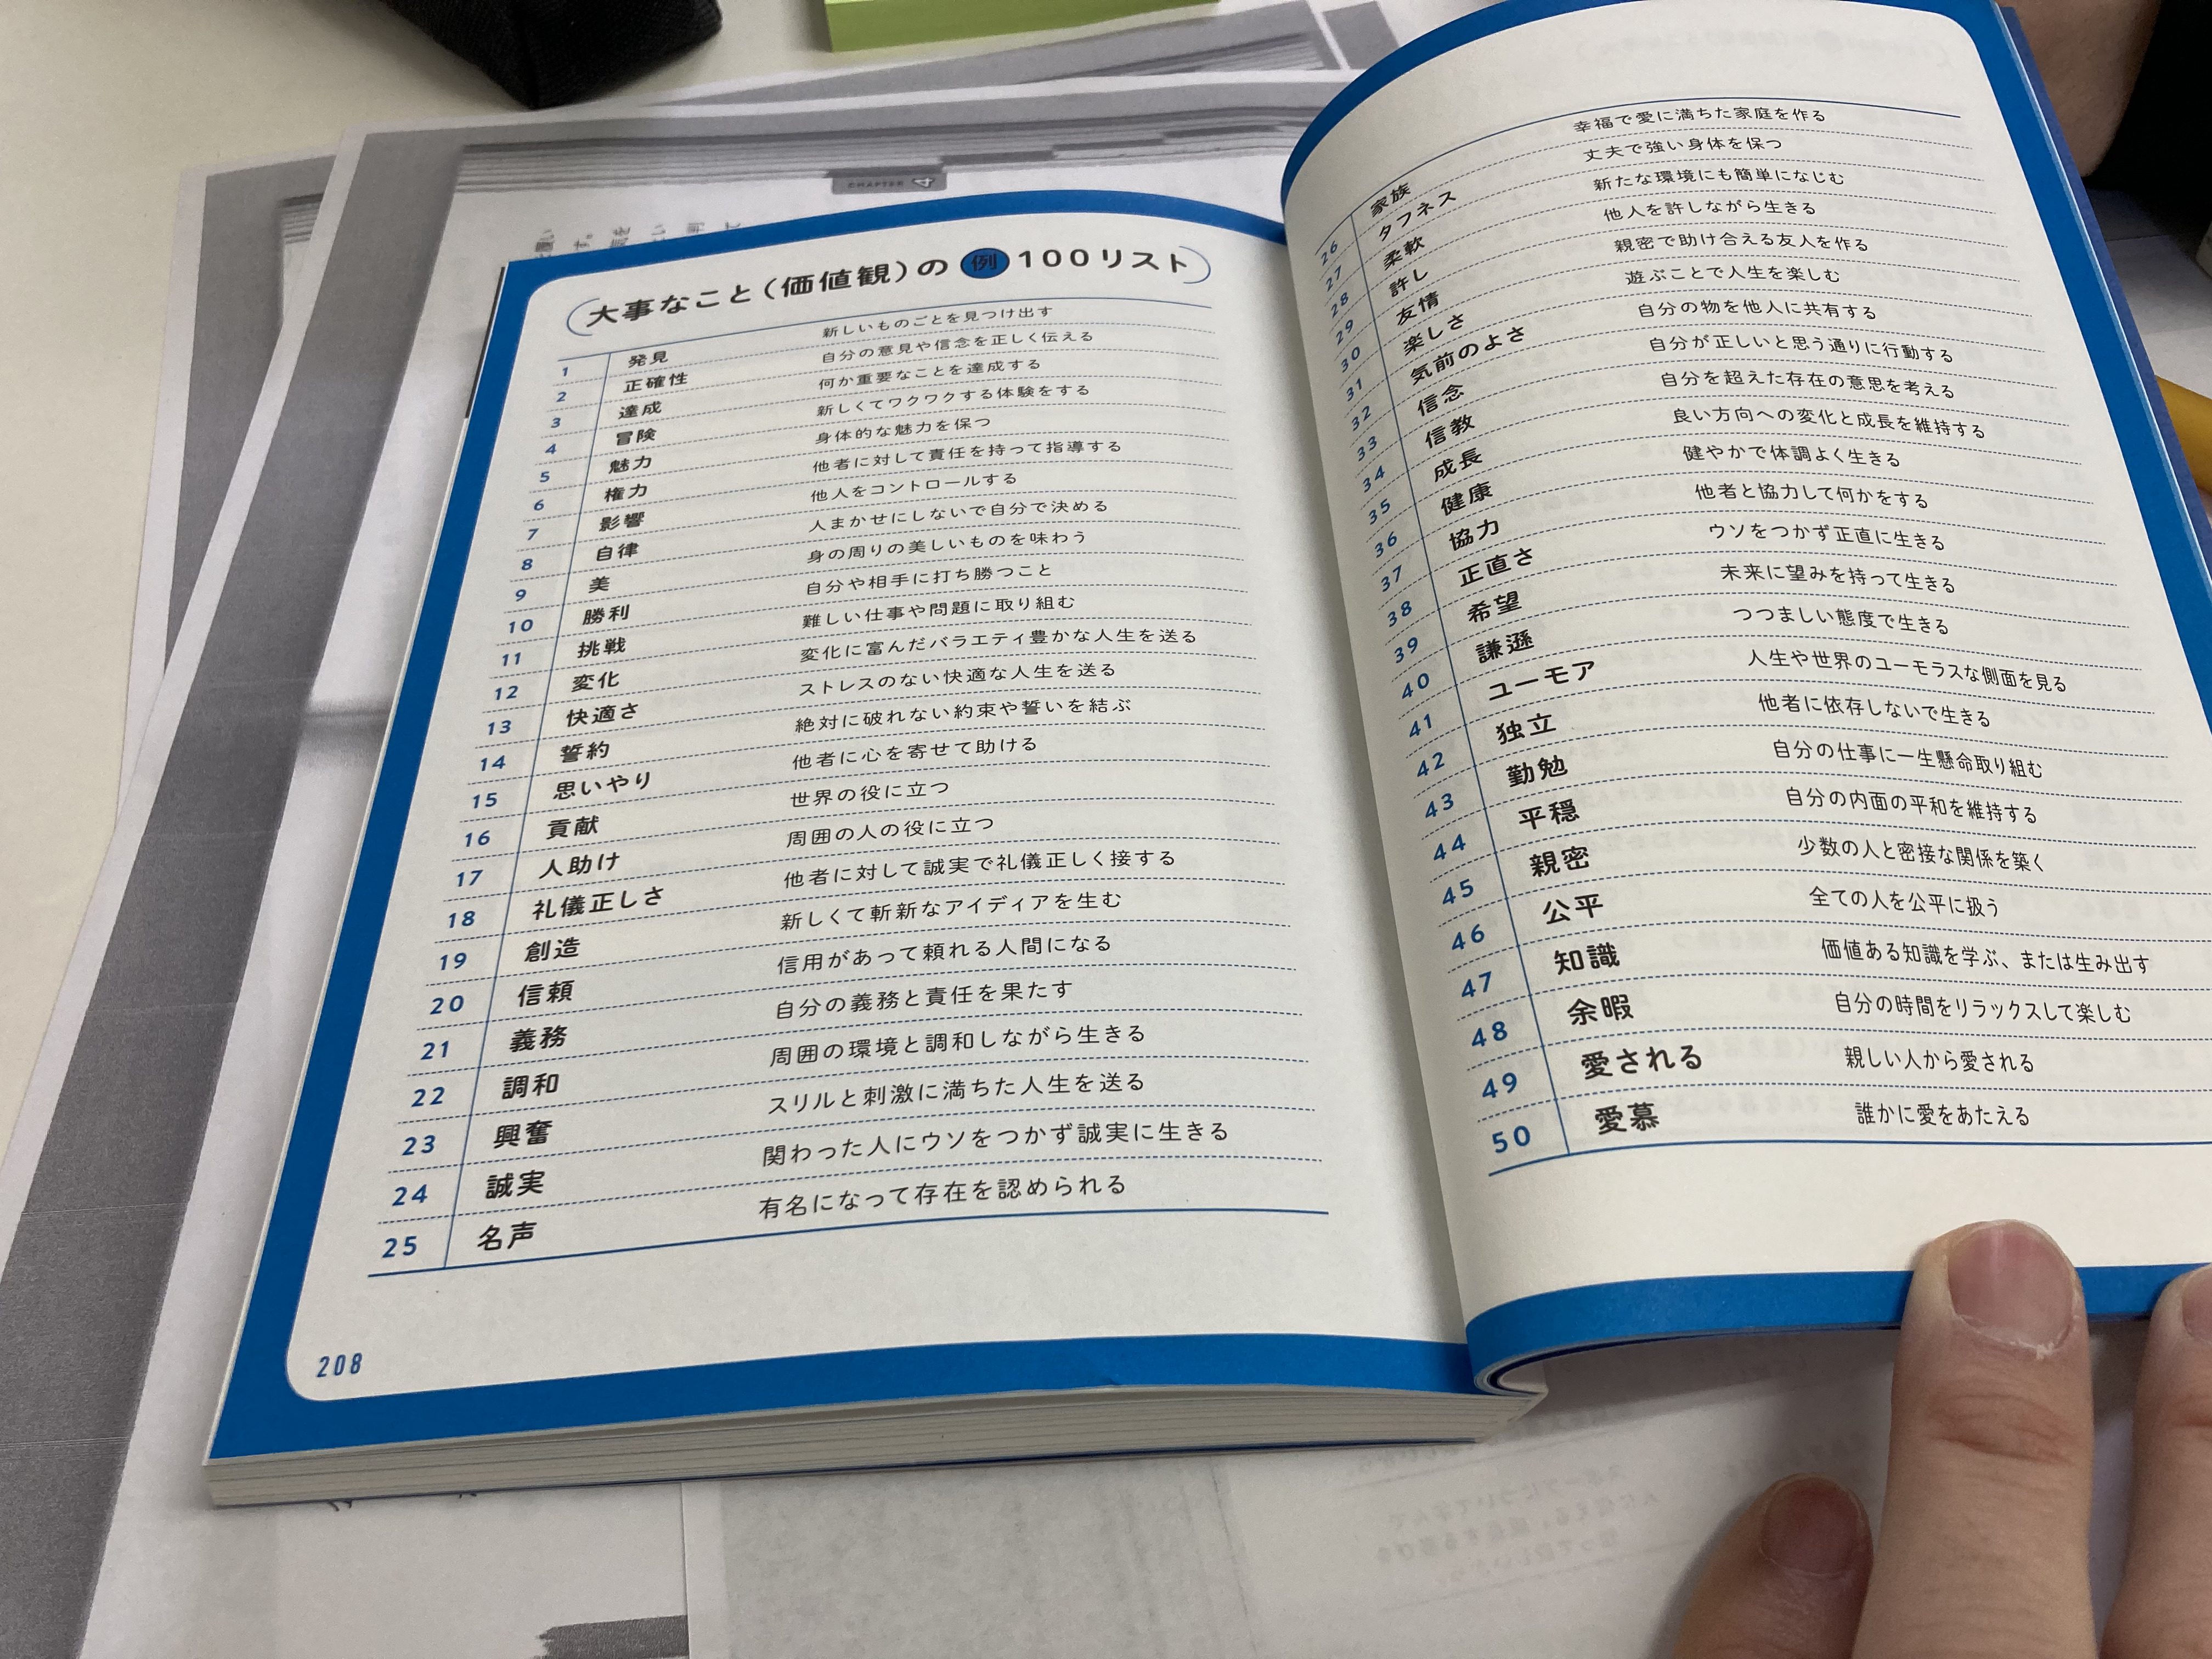 CHAPTER 4
大事なこと(価値観)の 例 100リスト
1 発見 新しいものごとを見つけ出す
2 正確性 自分の意見や信念を正しく伝える
3 達成 何か重要なことを達成する
4 冒険 新しくてワクワクする体験をする
5 魅力 身体的な魅力を保つ
6 権力 他者に対して責任を持って指導する
7 影響 他人をコントロールする
8 自律 人まかせにしないで自分で決める
9 美 身の周りの美しいものを味わう
10 勝利 自分や相手に打ち勝つこと
11 挑戦 難しい仕事や問題に取り組む
12 変化 変化に富んだバラエティ豊かな人生を送る
13 快適さ ストレスのない快適な人生を送る
14 誓約 絶対に破れない約束や誓いを結ぶ
15 思いやり 他者に心を寄せて助ける
16 貢献 世界の役に立つ
17 人助け 周囲の人の役に立つ
18 礼儀正しさ 他者に対して誠実で礼儀正しく接する
19 創造 新しくて斬新なアイディアを生む
20 信頼 信用があって頼れる人間になる
21 義務 自分の義務と責任を果たす
22 調和 周囲の環境と調和しながら生きる
23 興奮 スリルと刺激に満ちた人生を送る
24 誠実 関わった人にウソをつかず誠実に生きる
25 名声 有名になって存在を認められる
208
26 家族 幸福で愛に満ちた家庭を作る
27 タフネス 丈夫で強い身体を保つ
28 柔軟 新たな環境にも簡単になじむ
29 許し 他人を許しながら生きる
30 友情 親密で助け合える友人を作る
31 楽しさ 遊ぶことで人生を楽しむ
32 気前のよさ 自分の物を他人に共有する
33 信念 自分が正しいと思う通りに行動する
34 信教 自分を超えた存在の意思を考える
35 成長 良い方向への変化と成長を維持する
36 健康 健やかで体調よく生きる
37 協力 他者と協力して何かをする
38 正直さ ウソをつかず正直に生きる
39 希望 未来に望みを持って生きる
40 謙遜 つつましい態度で生きる
41 ユーモア 人生や世界のユーモラスな側面を見る
42 独立 他者に依存しないで生きる
43 勤勉 自分の仕事に一生懸命取り組む
44 平穏 自分の内面の平和を維持する
45 親密 少数の人と密接な関係を築く
46 公平 全ての人を公平に扱う
47 知識 価値ある知識を学ぶ、または生み出す
48 余暇 自分の時間をリラックスして楽しむ
49 愛される 親しい人から愛される
50 愛慕 誰かに愛をあたえる